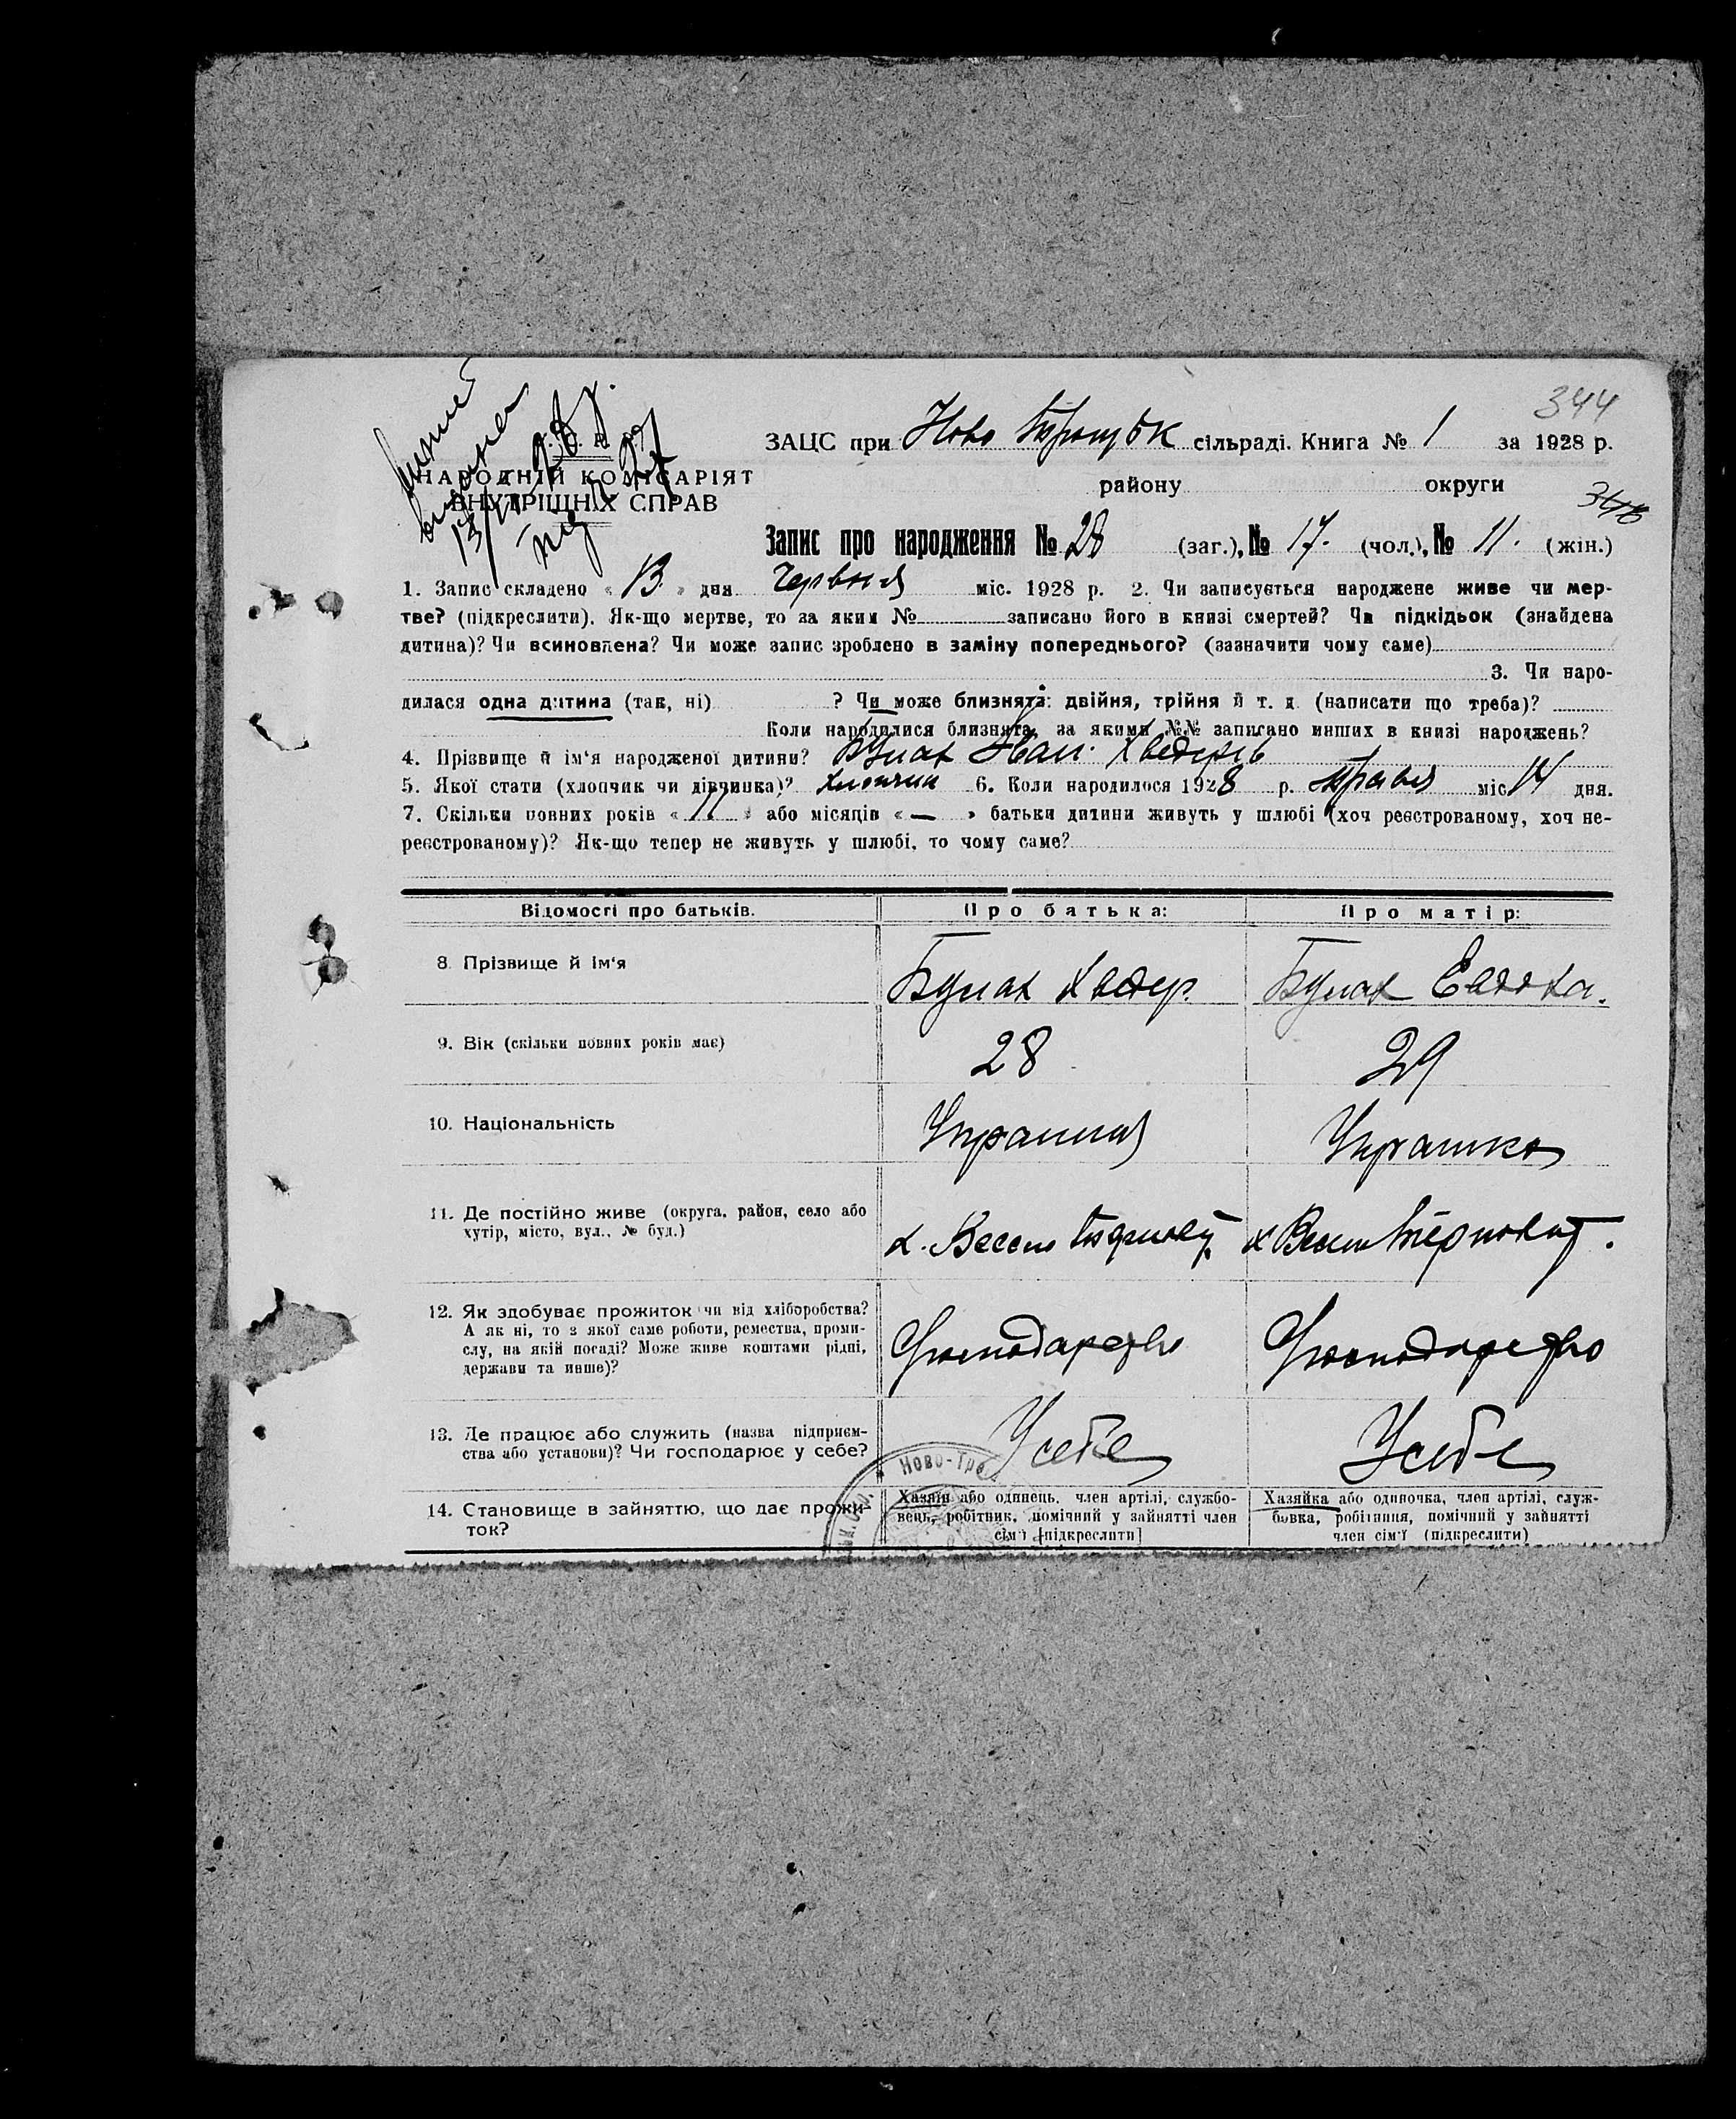 344
ЗАЦС при Ново сільраді. Книга № 1 за 1928 р.
НАРОДНІЙ КОМІСАРІЯТ
ВНУТРІШНІХ СПРАВ
району округи
Запис про народження № 28 (заг.), № 17. (чол.), № 11. (жін.)
1. Запис складено « 13 » дня Червня міс. 1928 р. 2. Чи записується народжене живе чи мер-
тве? (підкреслити). Як-що мертве, то за яким № записано його в книзі смертей? Чи підкідьок (знайдена
дитина)? Чи всиновлена? Чи може запис зроблено в заміну попереднього? (зазначити чому саме)
3. Чи наро-
дилася одна дитина (так, ні) ? Чи може близнята: двійня, трійня й т. д. (написати що треба)?
Коли народилися близнята, за якими №№ записано инших в книзі народжень?
4. Прізвище й ім'я народженої дитини? Іван Хведорів
5. Якої стати (хлопчик чи дівчинка)? хлопчик 6. Коли народилося 1928 р. травня міс 14 дня.
7. Скільки повних років « 11 » або місяців « — » батьки дитини живуть у шлюбі (хоч реєстрованому, хоч не-
реєстрованому)? Як-що тепер не живуть у шлюбі, то чому саме?
Відомості про батьків. Про батька: Про матір:
8. Прізвище й ім'я Хведір Евдокa.
9. Вік (скільки повних років має) 28 29
10. Національність Українця Українка
11. Де постійно живе (округа, район, село або
хутір, місто, вул., № буд.) х. Весело х Весело
12. Як здобуває прожиток чи від хліборобства?
А як ні, то з якої саме роботи, ремества, проми-
слу, на якій посаді? Може живе коштами рідні,
держави та инше)? Господарство Господарство
13. Де працює або служить (назва підприєм-
ства або установи)? Чи господарює у себе? У себе У себе
Ново-Тро
14. Становище в зайняттю, що дає прожи-
ток?
Хазяїн або одинець, член артілі, службо-
вець, робітник, помічний у зайнятті член
сім'ї [підкреслити]
Хазяйка або одиночка, член артілі, служ-
бовка, робітниця, помічний у зайнятті
член сім'ї (підкреслити)